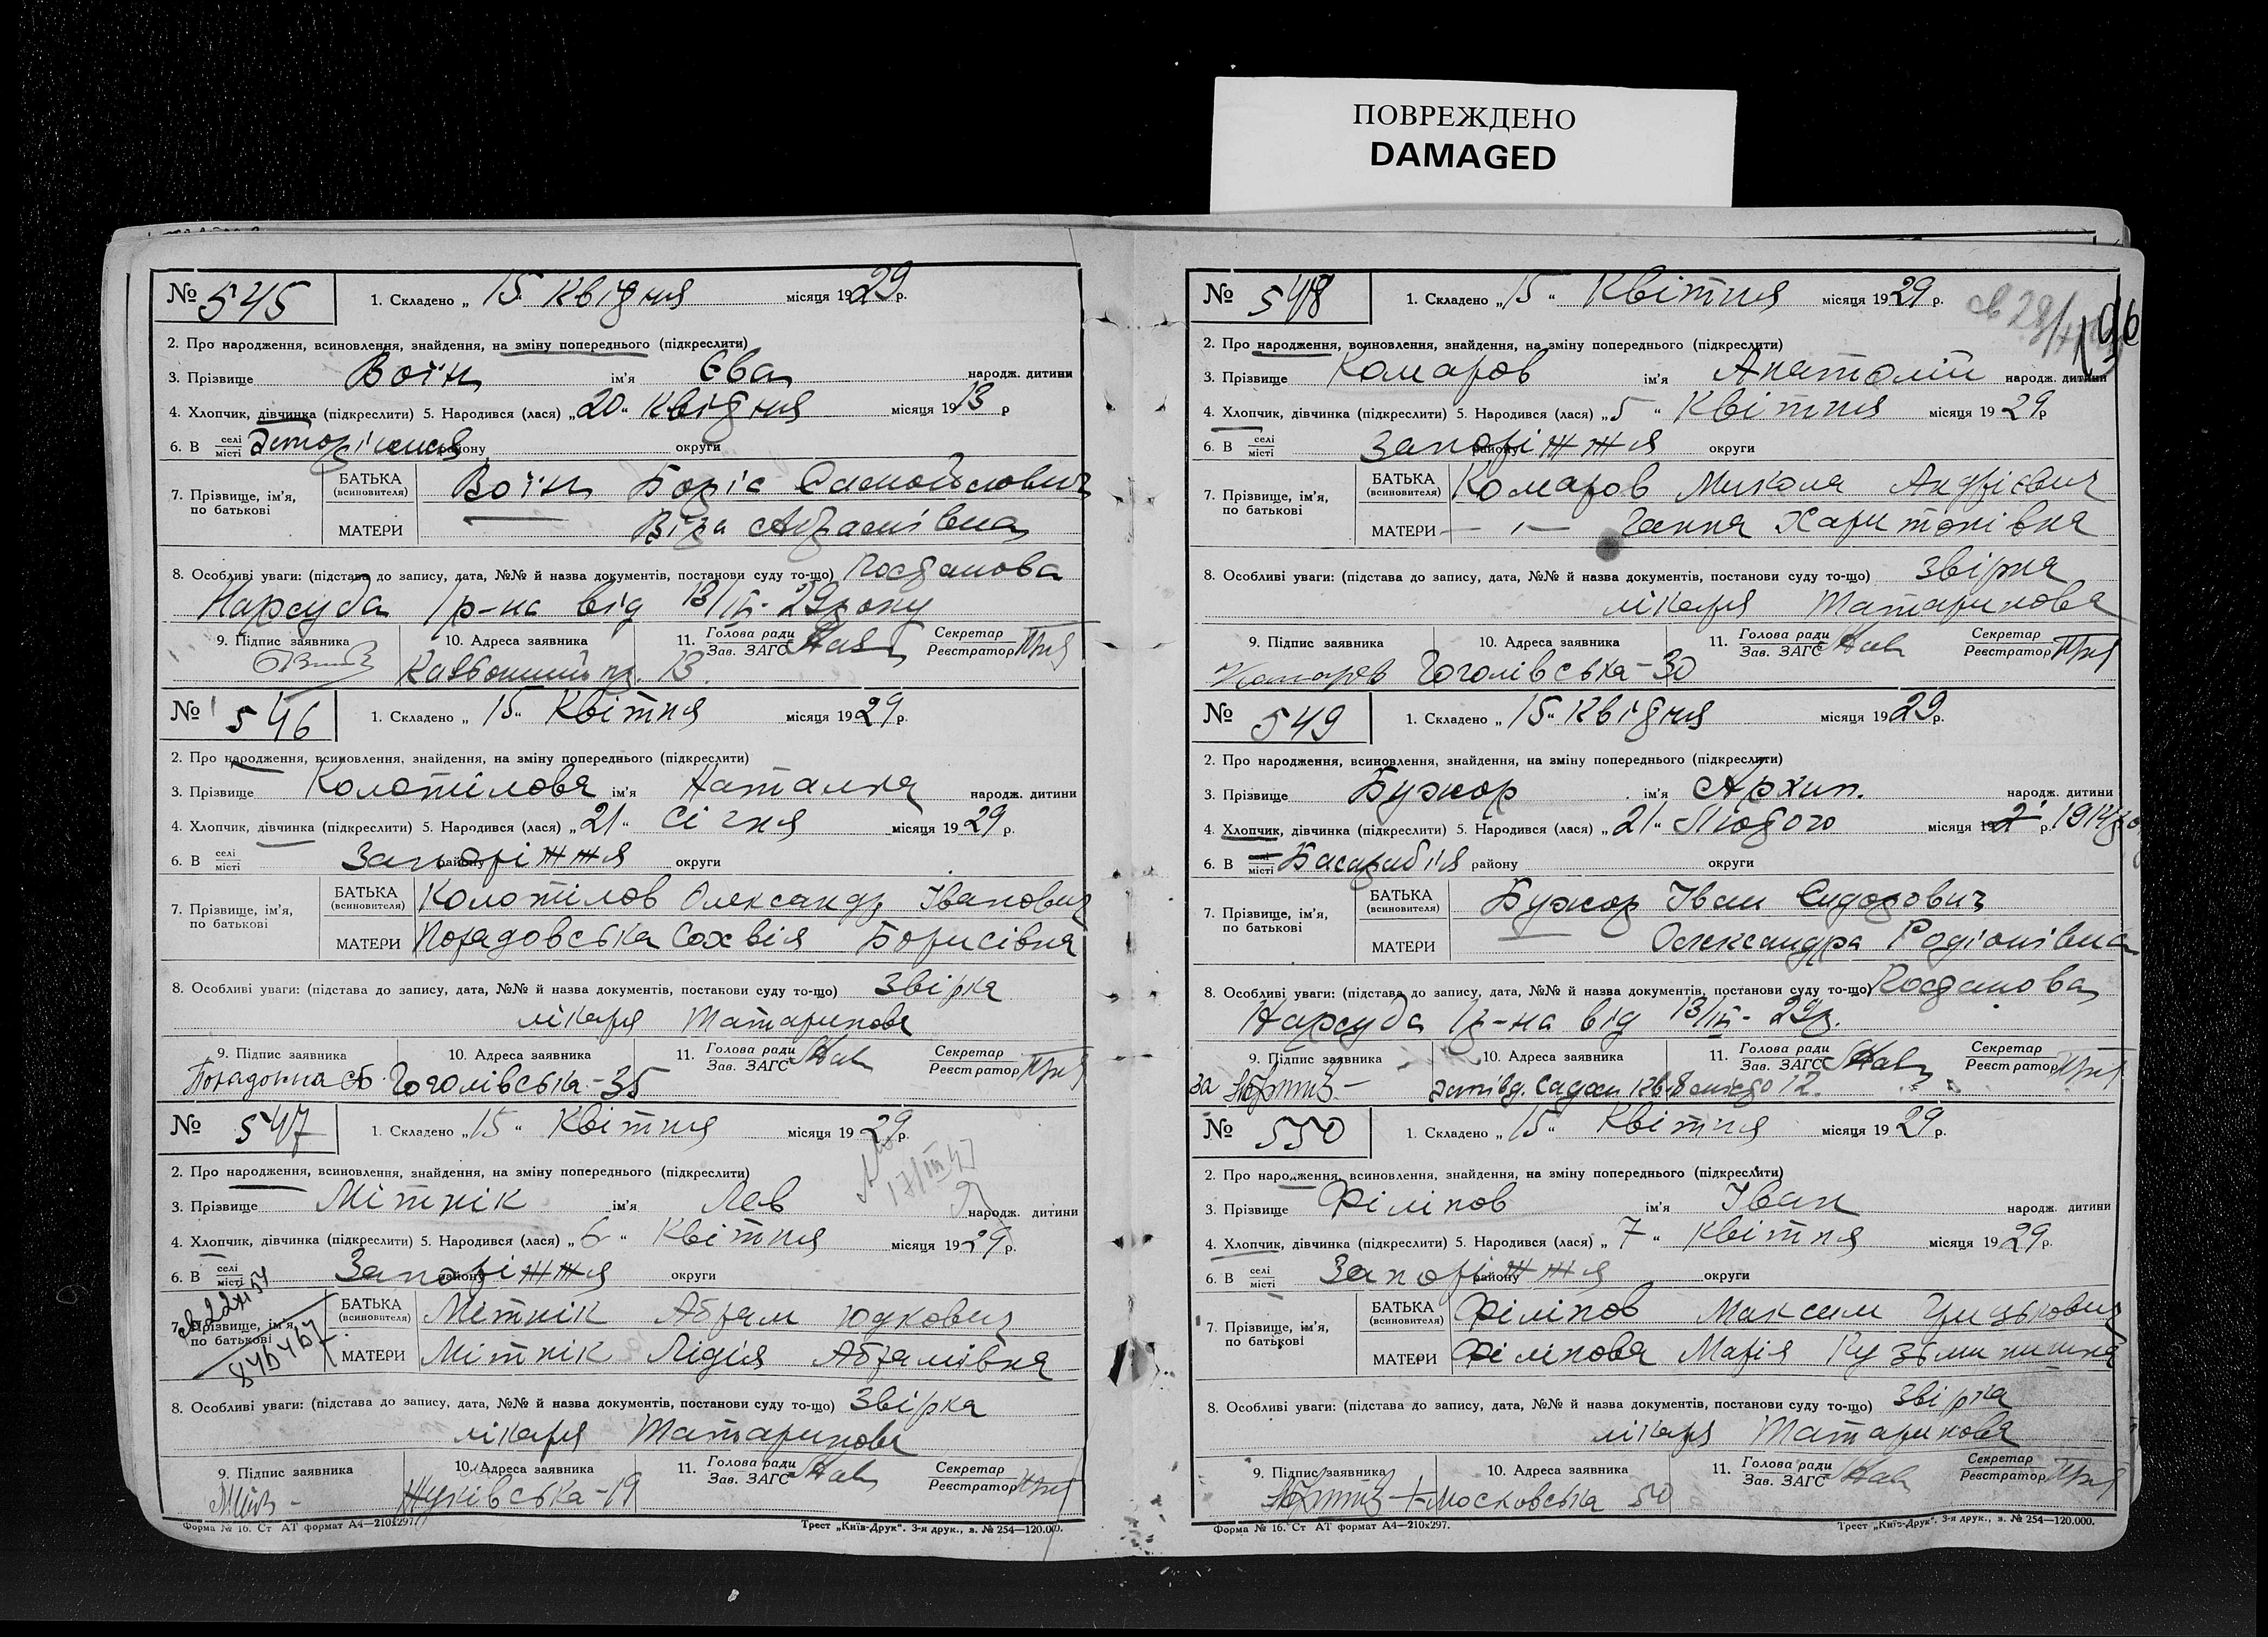 ПОВРЕЖДЕНО
DAMAGED
№ 545 1. Складено „ 15 Квідня місяця 1929 р.
2. Про народження, всиновлення, знайдення, на зміну попереднього (підкреслити)
3. Прізвище Воїн ім'я Єва народж. дитини
4. Хлопчик, дівчинка (підкреслити) 5. Народився (лася) „20“ Квідня місяця 1913 р
6. В селі місті району округи
7. Прізвище, ім'я, по батькові БАТЬКА (всиновителя) Воїн Боріс Самойлович
МАТЕРИ — Віра Абрамівна
8. Особливі уваги: (підстава до запису, дата, №№ й назва документів, постанови суду то-що) Посданова
Нарсуда 1 р-на від 13/IV-29 року
9. Підпис заявника 10. Адреса заявника 11. Голова ради Зав. ЗАГС Секретар Реєстратор
13.
№ 546 1. Складено „ 15“ Квітня місяця 1929 р.
2. Про народження, всиновлення, знайдення, на зміну попереднього (підкреслити)
3. Прізвище Колотілова ім'я Наталка народж. дитини
4. Хлопчик, дівчинка (підкреслити) 5. Народився (лася) „21“ Січня місяця 1929 р.
6. В селі місті Запоріжжя району округи
7. Прізвище, ім'я, по батькові БАТЬКА (всиновителя) Колотілов Олександр Іванович
МАТЕРИ Порадовська Сохвія Борисівна
8. Особливі уваги: (підстава до запису, дата, №№ й назва документів, постанови суду то-що) Звірка
лікаря Татаринова
9. Підпис заявника 10. Адреса заявника 11. Голова ради Зав. ЗАГС Секретар Реєстратор
Гоголівська-35
№ 547 1. Складено „15“ Квітня місяця 1929 р.
17/III 47
2. Про народження, всиновлення, знайдення, на зміну попереднього (підкреслити)
3. Прізвище Мітнік ім'я Лев народж. дитини
4. Хлопчик, дівчинка (підкреслити) 5. Народився (лася) „6“ Квітня місяця 1929 р.
6. В селі місті Запоріжжя району округи
7. Прізвище, ім'я, по батькові БАТЬКА (всиновителя) Мітнік Абрам Юдкович
МАТЕРИ Мітнік Лідія Абрамівна
8. Особливі уваги: (підстава до запису, дата, №№ й назва документів, постанови суду то-що) Звірка
лікаря Татаринова
9. Підпис заявника 10. Адреса заявника 11. Голова ради Зав. ЗАГС Секретар Реєстратор
Жуківська-19
Форма № 16. Ст АТ формат А4—210х297. Трест „Київ-Друк“. 3-я друк., з. № 254—120.000.
№ 548 1. Складено „15“ Квітня місяця 1929 р.
2. Про народження, всиновлення, знайдення, на зміну попереднього (підкреслити)
3. Прізвище Комаров ім'я Анатолій народж. дитини
4. Хлопчик, дівчинка (підкреслити) 5. Народився (лася) „5“ Квітня місяця 1929 р
6. В селі місті Запоріжжя району округи
7. Прізвище, ім'я, по батькові БАТЬКА (всиновителя) Комаров Микола Андрієвич
МАТЕРИ — „ — Ганна Харитонівна
8. Особливі уваги: (підстава до запису, дата, №№ й назва документів, постанови суду то-що) Звірка
лікаря Татаринова
9. Підпис заявника 10. Адреса заявника 11. Голова ради Зав. ЗАГС Секретар Реєстратор
Комаров Гоголівська-30
№ 549 1. Складено „15“ Квідня місяця 1929 р.
2. Про народження, всиновлення, знайдення, на зміну попереднього (підкреслити)
3. Прізвище Бужор ім'я Архип. народж. дитини
4. Хлопчик, дівчинка (підкреслити) 5. Народився (лася) „21“ Людого місяця 192 р. 1914
6. В селі місті Басарабія району округи
7. Прізвище, ім'я, по батькові БАТЬКА (всиновителя) Бужор Іван Сидорович
МАТЕРИ — Олександра Родіонівна
8. Особливі уваги: (підстава до запису, дата, №№ й назва документів, постанови суду то-що) Посданова
Нарсуда 1 р-на від 13/IV-29р.
9. Підпис заявника 10. Адреса заявника 11. Голова ради Зав. ЗАГС Секретар Реєстратор
за 12.
№ 550 1. Складено „15“ Квітня місяця 1929 р.
2. Про народження, всиновлення, знайдення, на зміну попереднього (підкреслити)
3. Прізвище Філіпов ім'я Іван народж. дитини
4. Хлопчик, дівчинка (підкреслити) 5. Народився (лася) „7“ Квітня місяця 1929 р.
6. В селі місті Запоріжжя району округи
7. Прізвище, ім'я, по батькові БАТЬКА (всиновителя) Філіпов Максим
МАТЕРИ Філіпова Марія Кузьминишна
8. Особливі уваги: (підстава до запису, дата, №№ й назва документів, постанови суду то-що) Звірка
лікаря Татаринова
9. Підпис заявника 10. Адреса заявника 11. Голова ради Зав. ЗАГС Секретар Реєстратор
Московська 50
Форма № 16. Ст АТ формат А4—210х297. Трест „Київ-Друк“. 3-я друк., з. № 254—120.000.